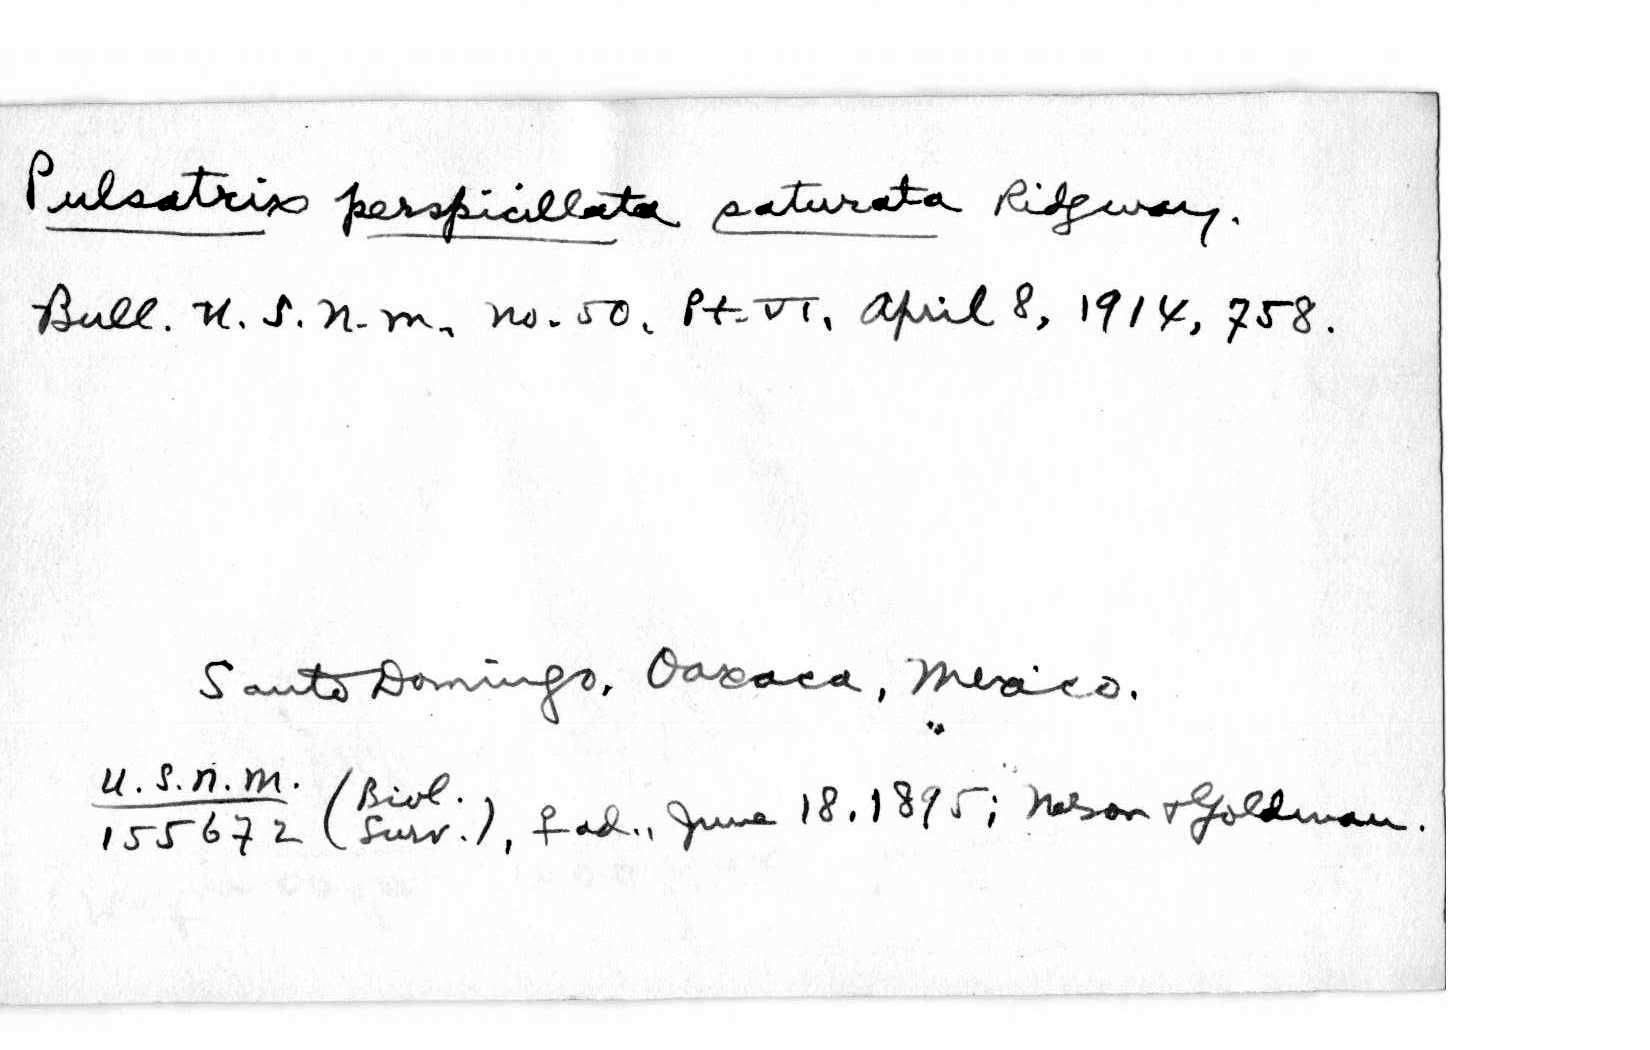 Pulsatrix perspicillata saturata Ridgway.
Bull. U. S. N. M., No. 50, Pt. VI, April 8, 1914, 758.
Santo Domingo, Oaxaca, Mexico.
U.S.N.M. (Biol.
155672 Surv.), ♀ ad., June 18, 1895; Nelson & Goldman.